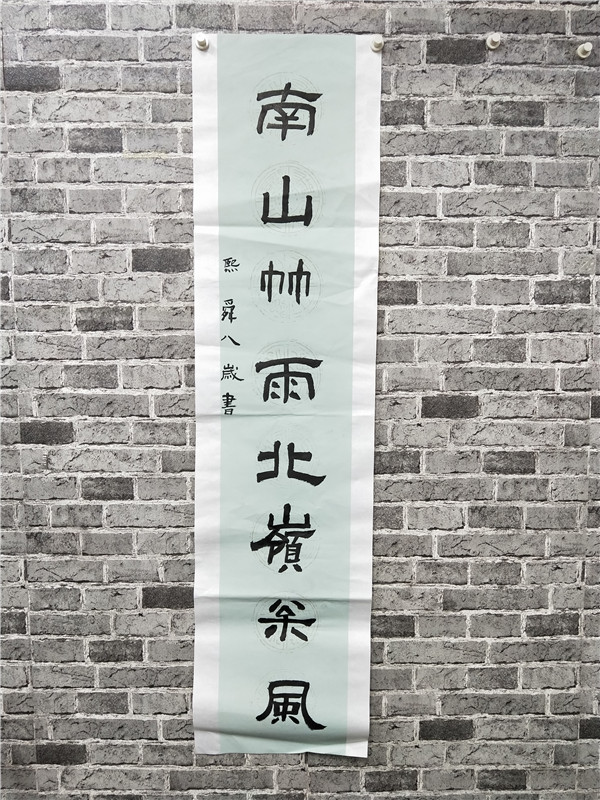 南山竹雨北嶺枀風
熙舜八歲書